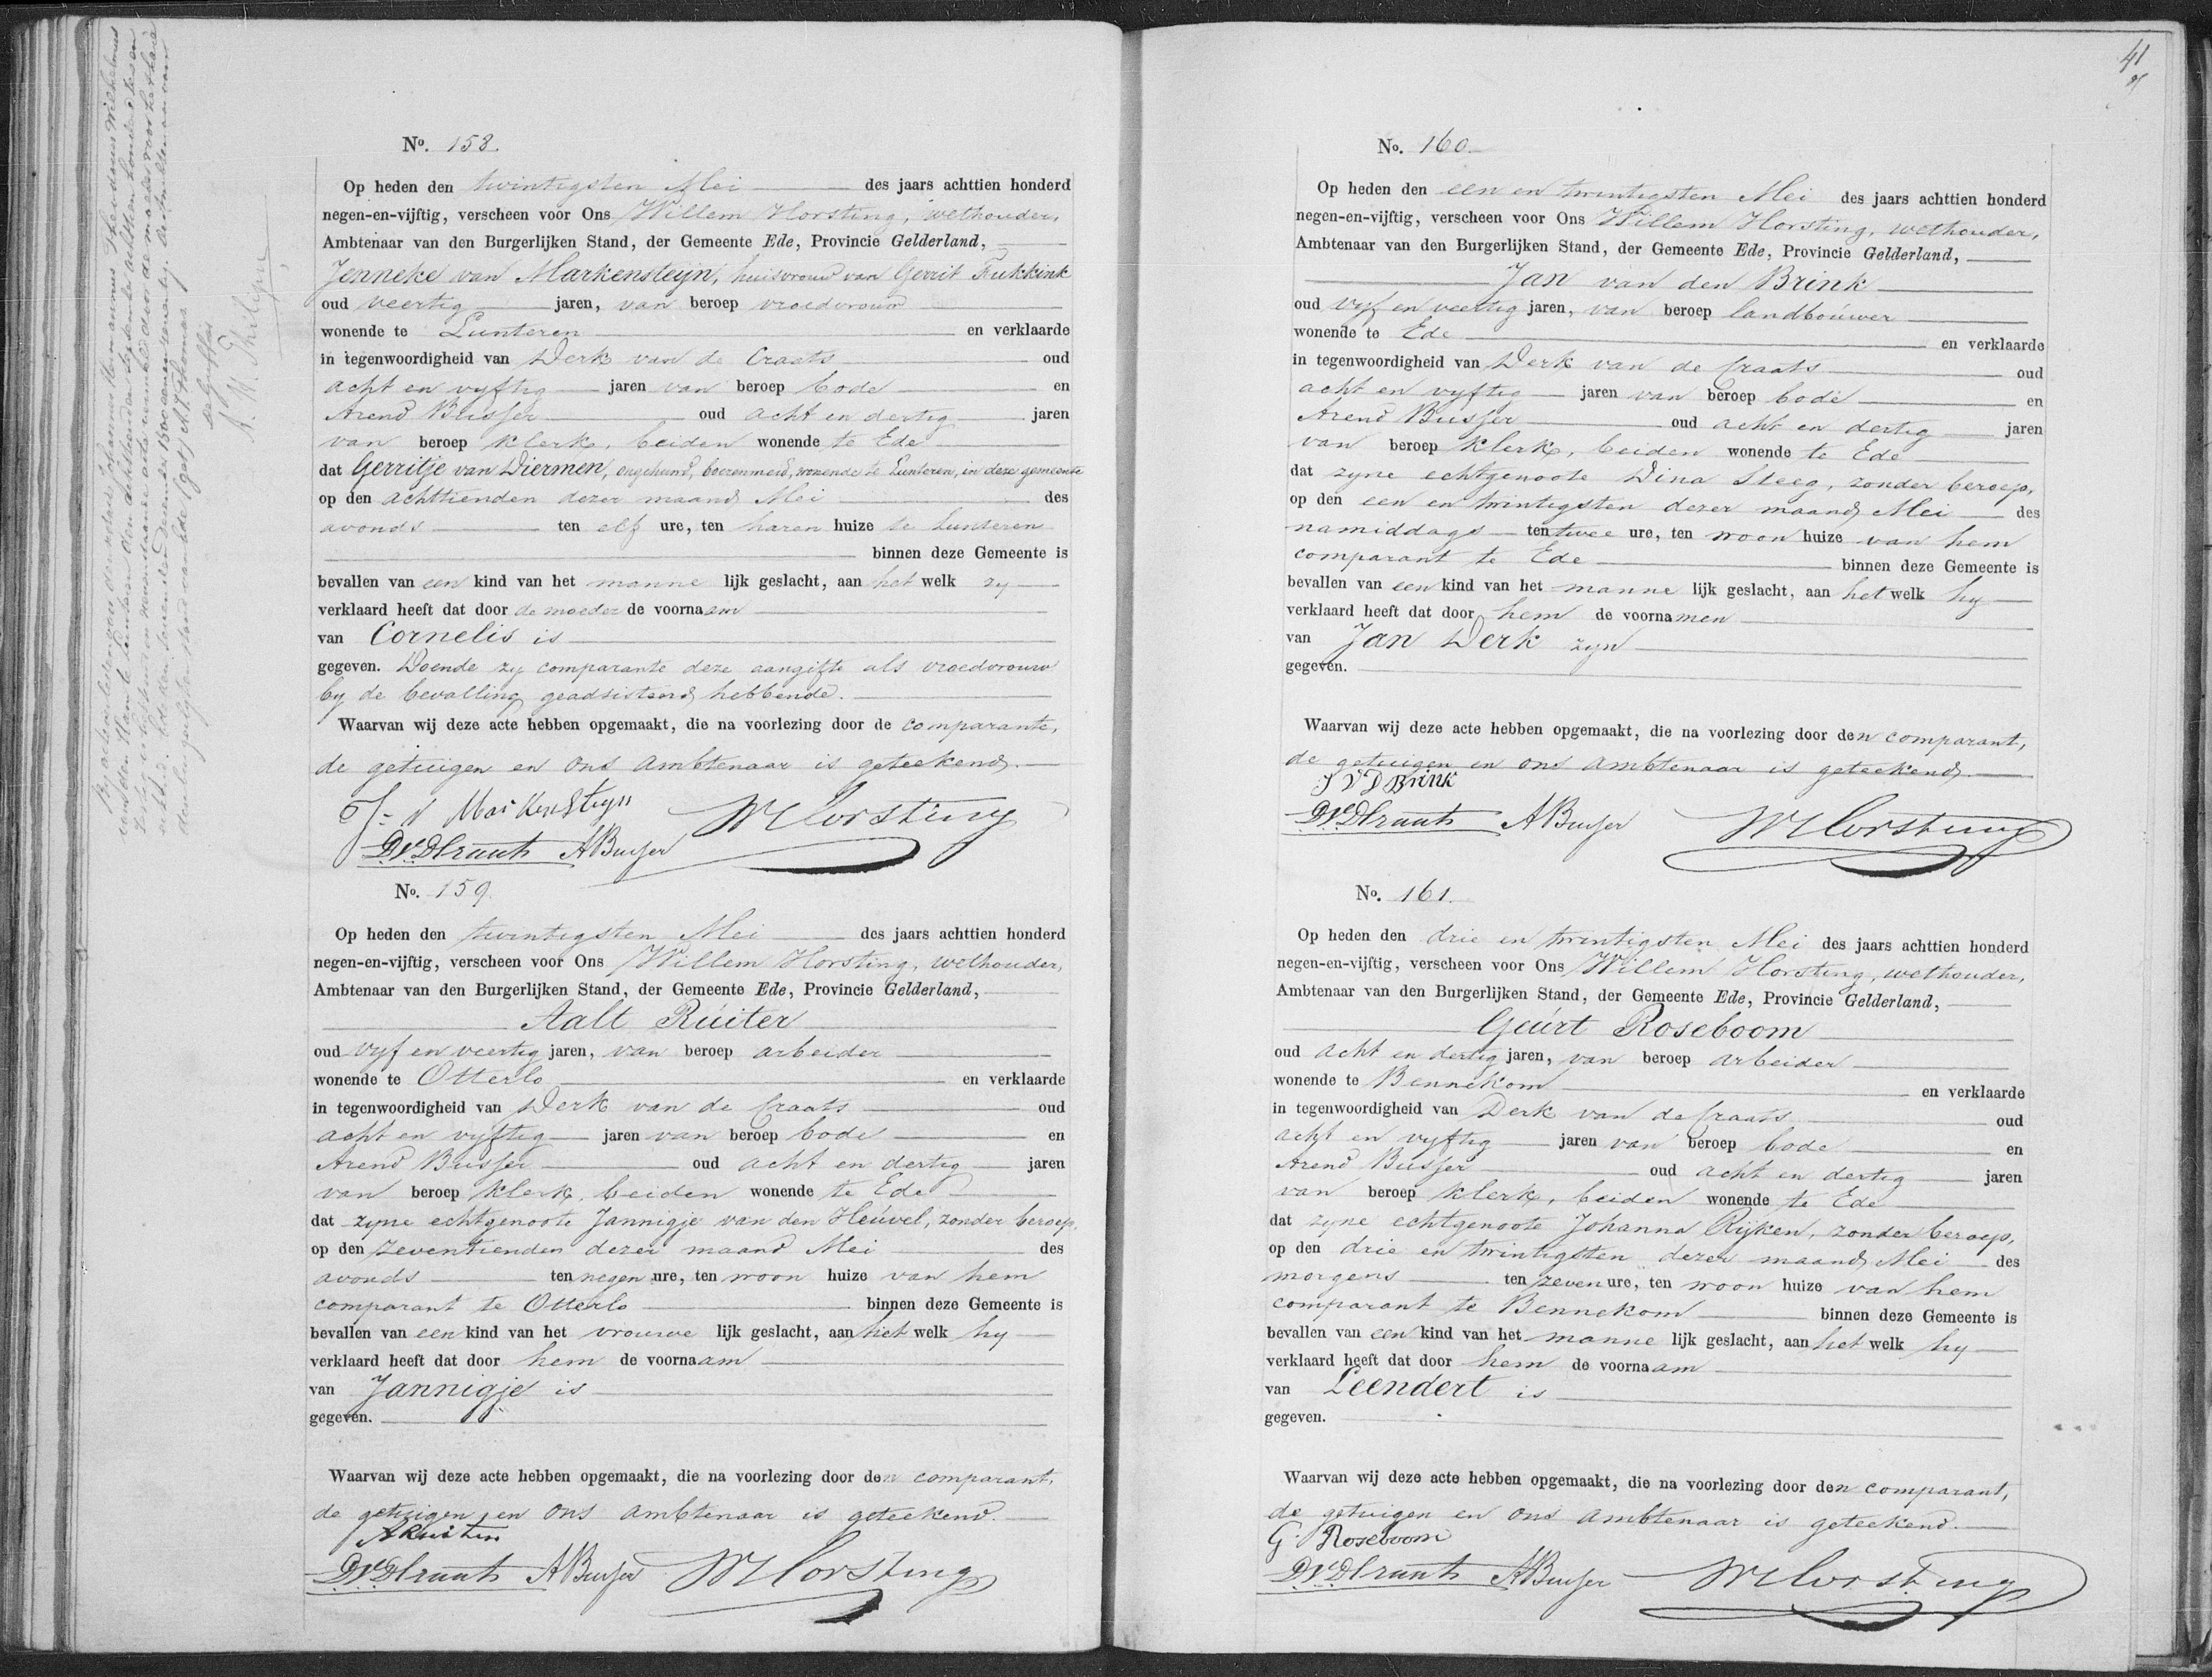 No. 158.
Op heden den twintigsten Mei des jaars achttien honderd
negen-en-vijftig, verscheen voor Ons Willem Horsting, wethouder,
Ambtenaar van den Burgerlijken Stand, der Gemeente Ede, Provincie Gelderland,
Jenneke van Markensteijn, huisvrouw van Gerrit Fukkink
oud veertig jaren, van beroep vroedvrouw
wonende te Lunteren en verklaarde
in tegenwoordigheid van Derk van de Craats oud
acht en vyftig jaren van beroep bode en
Arend Busser oud acht en dertig jaren
van beroep klerk, beiden wonende te Ede
dat Gerritje van Diermen, ongehuwd, boerenmeid, wonende te Lunteren, in deze gemeente
op den achttienden dezer maand Mei des
avonds ten elf ure, ten haren huize te Lunteren
binnen deze Gemeente is
bevallen van een kind van het manne lijk geslacht, aan het welk zy
verklaard heeft dat door de moeder de voornaam
van Cornelis is
gegeven. Doende zy comparante deze aangifte als vroedvrouw
by de bevalling geadsisteerd hebbende.
Waarvan wij deze acte hebben opgemaakt, die na voorlezing door de comparante,
de getuigen en ons ambtenaar is geteekend.
J v Markensteyn WHorsting
DvDCraats ABusser
No. 159.
Op heden den twintigsten Mei des jaars achttien honderd
negen-en-vijftig, verscheen voor Ons Willem Horsting, wethouder,
Ambtenaar van den Burgerlijken Stand, der Gemeente Ede, Provincie Gelderland,
Aalt Ruiter
oud vyf en veertig jaren, van beroep arbeider
wonende te Otterlo en verklaarde
in tegenwoordigheid van Derk van de Craats oud
acht en vyftig jaren van beroep bode en
Arend Busser oud acht en dertig jaren
van beroep klerk, beiden wonende te Ede
dat zyne echtgenoote Jannigje van den Heuvel, zonder beroep,
op den zeventienden dezer maand Mei des
avonds ten negen ure, ten woon huize van hem
comparant te Otterlo binnen deze Gemeente is
bevallen van een kind van het vrouwe lijk geslacht, aan het welk hy
verklaard heeft dat door hem de voornaam
van Jannigje is
gegeven.
Waarvan wij deze acte hebben opgemaakt, die na voorlezing door den comparant,
de getuigen en ons ambtenaar is geteekend.
DvDCraats ABusser WHorsting
41
No. 160.
Op heden den een en twintigsten Mei des jaars achttien honderd
negen-en-vijftig, verscheen voor Ons Willem Horsting, wethouder,
Ambtenaar van den Burgerlijken Stand, der Gemeente Ede, Provincie Gelderland,
Jan van den Brink
oud vyf en veertig jaren, van beroep landbouwer
wonende te Ede en verklaarde
in tegenwoordigheid van Derk van de Craats oud
acht en vyftig jaren van beroep bode en
Arend Busser oud acht en dertig jaren
van beroep klerk, beiden wonende te Ede
dat zyne echtgenoote Dina Steeg, zonder beroep,
op den een en twintigsten dezer maand Mei des
namiddags ten twee ure, ten woon huize van hem
comparant te Ede binnen deze Gemeente is
bevallen van een kind van het manne lijk geslacht, aan het welk hy
verklaard heeft dat door hem de voornamen
van Jan Derk zyn
gegeven.
Waarvan wij deze acte hebben opgemaakt, die na voorlezing door den comparant,
de getuigen en ons ambtenaar is geteekend.
J V D Brink
DvDCraats ABusser WHorsting
No. 161.
Op heden den drie en twintigsten Mei des jaars achttien honderd
negen-en-vijftig, verscheen voor Ons Willem Horsting, wethouder,
Ambtenaar van den Burgerlijken Stand, der Gemeente Ede, Provincie Gelderland,
Geurt Roseboom
oud acht en dertig jaren, van beroep arbeider
wonende te Bennekom en verklaarde
in tegenwoordigheid van Derk van de Craats oud
acht en vyftig jaren van beroep bode en
Arend Busser oud acht en dertig jaren
van beroep klerk, beiden wonende te Ede
dat zyne echtgenoote Johanna Rijken, zonder beroep,
op den drie en twintigsten dezer maand Mei des
morgens ten zeven ure, ten woon huize van hem
comparant te Bennekom binnen deze Gemeente is
bevallen van een kind van het manne lijk geslacht, aan het welk hy
verklaard heeft dat door hem de voornaam
van Leendert is
gegeven.
Waarvan wij deze acte hebben opgemaakt, die na voorlezing door den comparant,
de getuigen en ons ambtenaar is geteekend.
G. Roseboom
DvDCraats ABusser WHorsting